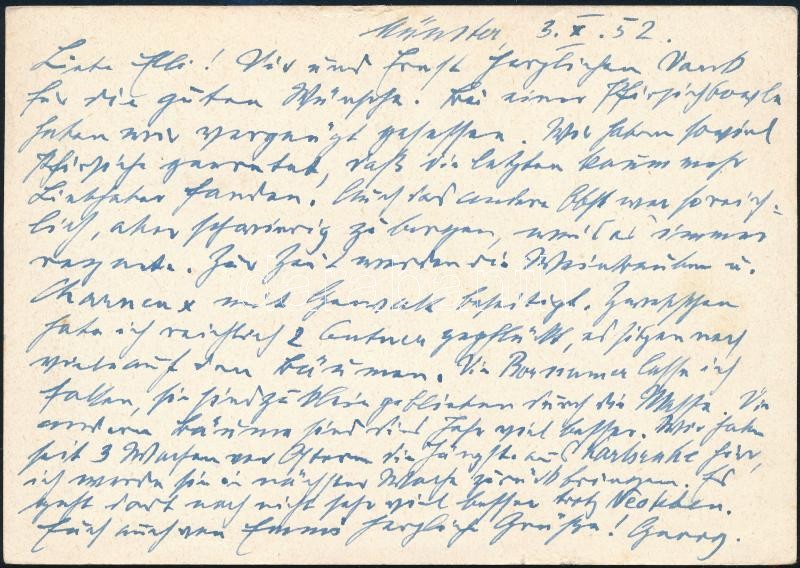 Münster, 3. X. 52.
Liebe Elli! Dir und Ernst herzlichen Dank
für die guten Wünsche. Bei einer Pfirsichbowle
haben wir vergnügt gesessen. Wir haben soviel
Pfirsiche geerntet, daß die letzten kaum mehr
Liebhaber fanden. Auch das andere Obst war so reich-
lich, aber schwierig zu bergen, weil es immer
regnete. Zur Zeit werden die Weintrauben u.
mit Gewalt beseitigt. Zwetschen
habe ich reichlich 2 Centner gepflückt, es sitzen noch
viele auf den Bäumen. Die lasse ich
fallen, sie sind zu klein geblieben durch die Masse. Die
anderen Bäume sind dies Jahr viel besser. Wir haben
seit 3 Wochen vor Ostern die Jüngste aus Karlsruhe hier,
ich werde sie in nächster Woche zurückbringen. Es
geht dort noch nicht sehr viel besser trotz
Euch auch von Emmi herzliche Grüße! Georg.